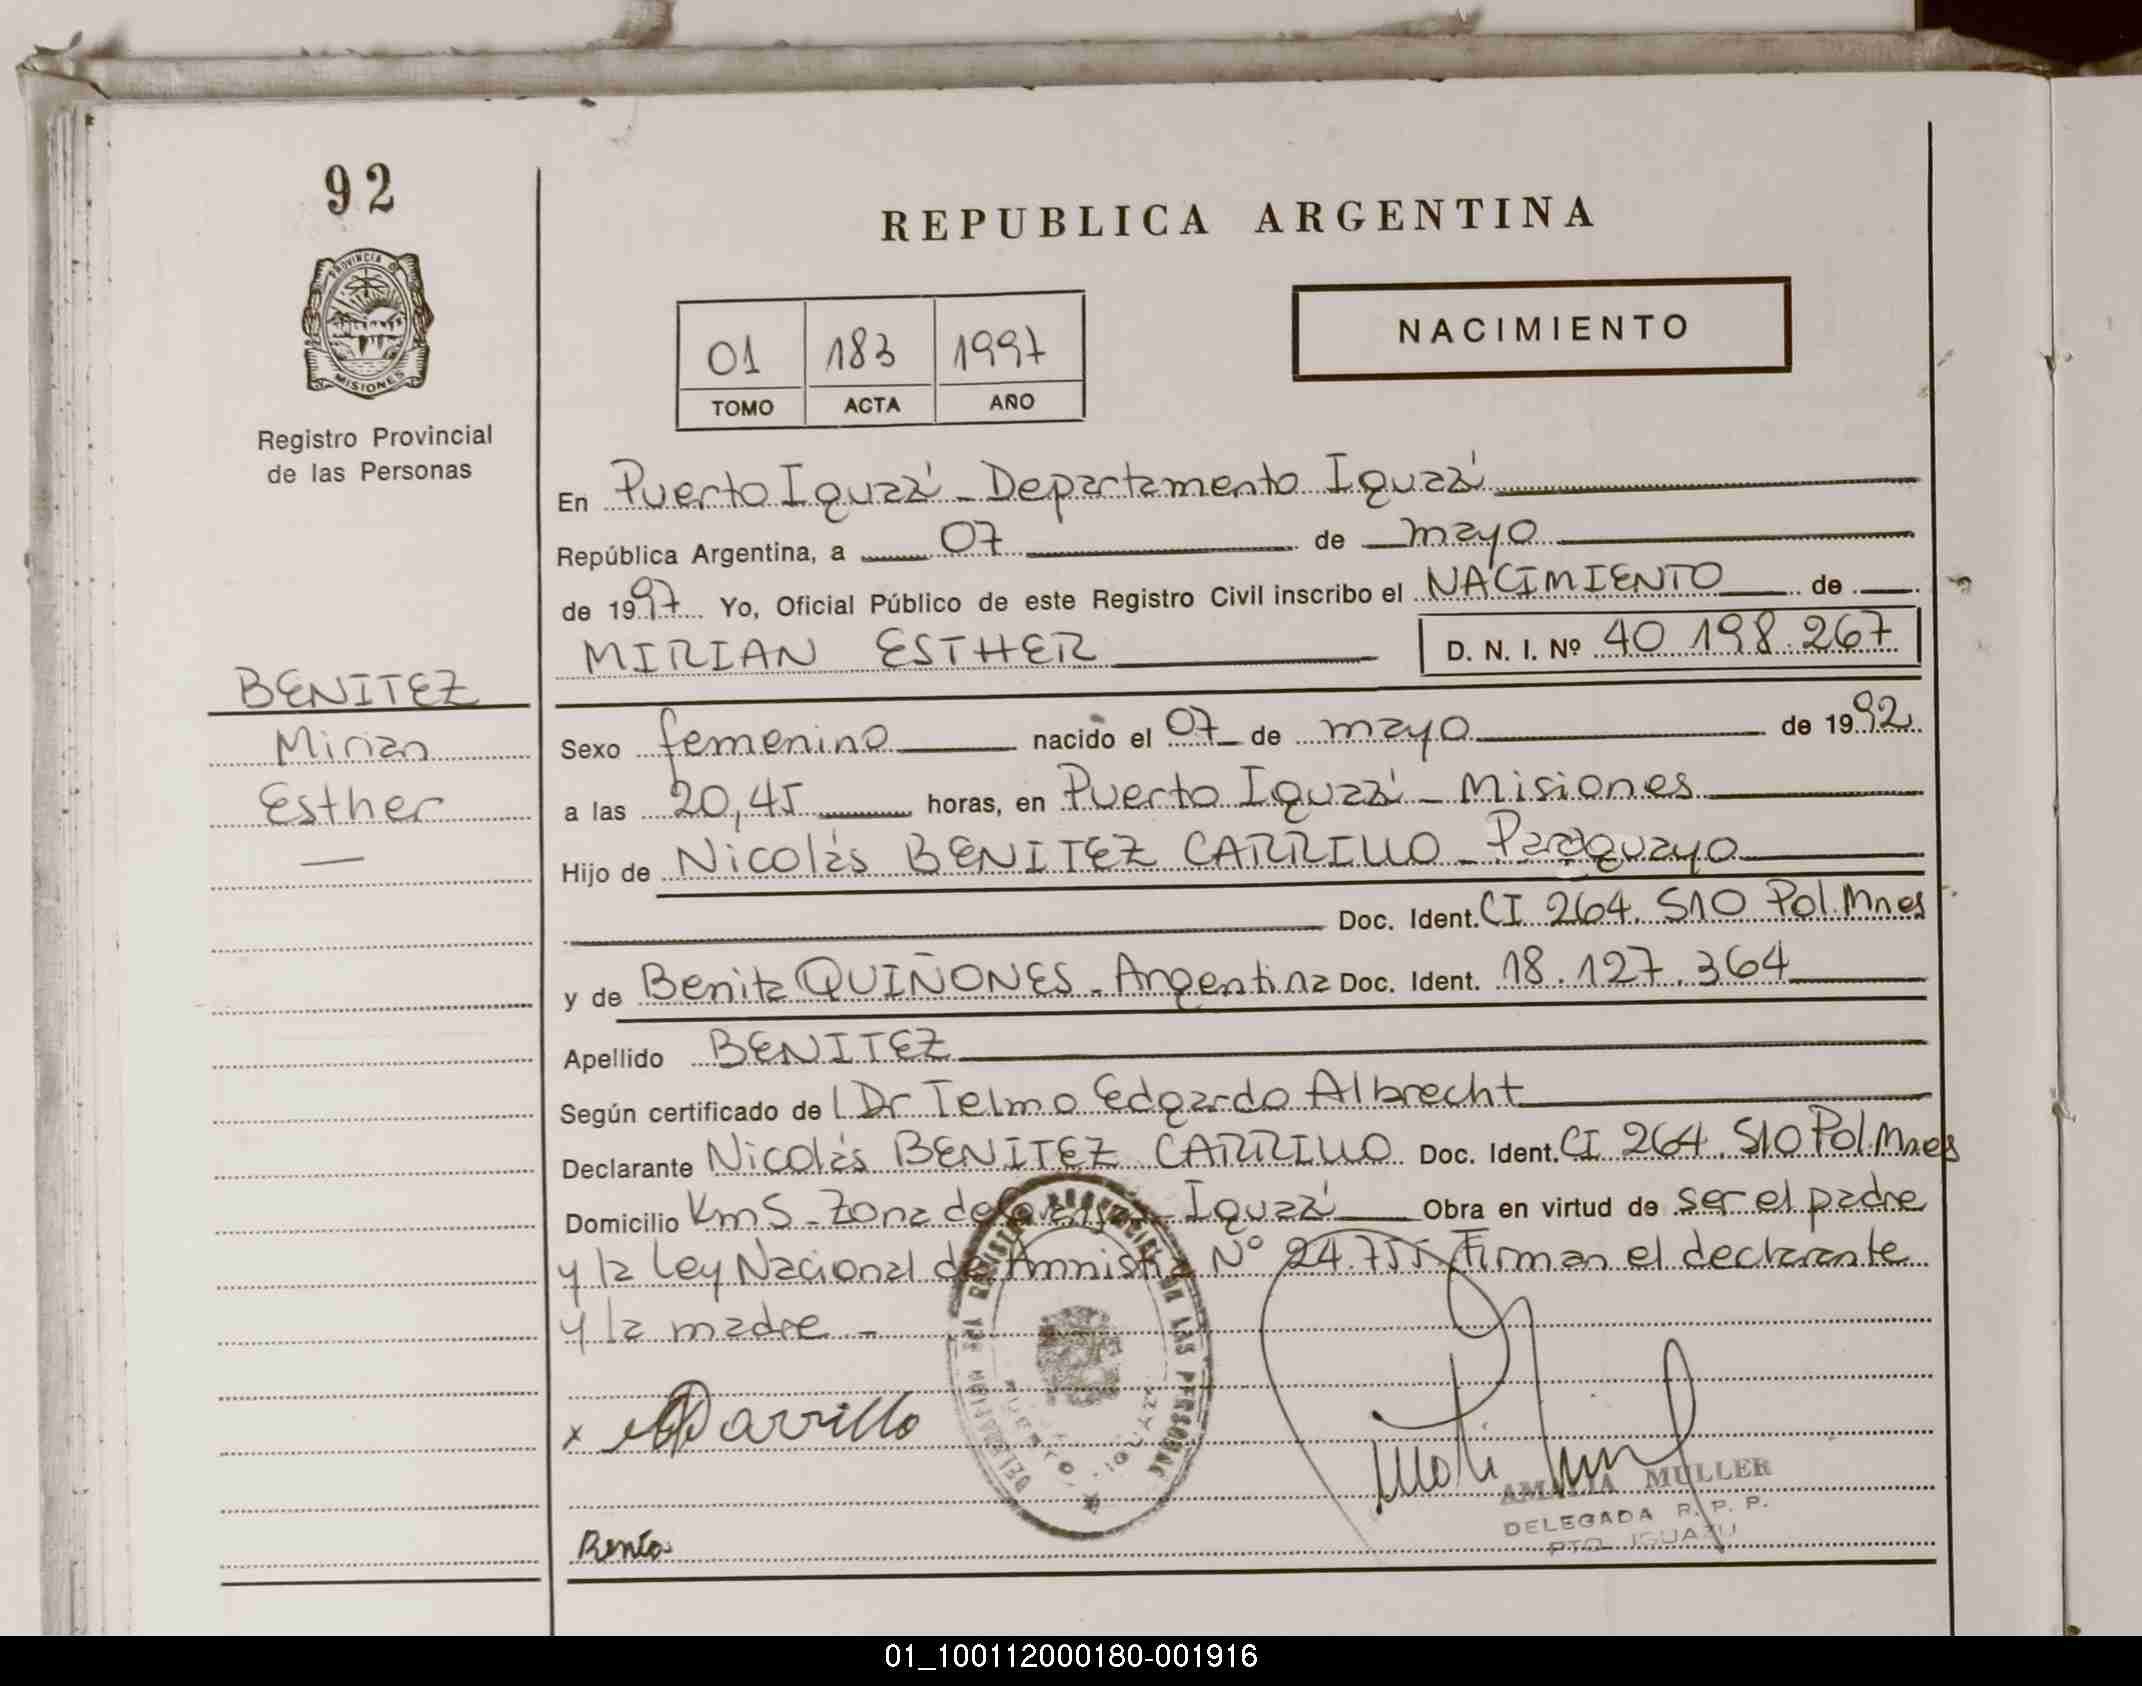 92
PROVINCIA D
MISIONES
Registro Provincial
de las Personas
BENITEZ
Mirian
Esther
REPUBLICA ARGENTINA
01 183 1997
TOMO ACTA AÑO
NACIMIENTO
En Puerto Iguazú - Departamento Iguazú
República Argentina, a 07 de mayo
de 1997 Yo, Oficial Público de este Registro Civil inscribo el NACIMIENTO de
MIRIAN ESTHER D. N. I. Nº 40 198.267
Sexo femenino nacido el 07 de mayo de 1992
a las 20,45 horas, en Puerto Iguazú - Misiones
Hijo de Nicolás BENITEZ CARRILLO - Paraguayo
Doc. Ident. CI 264.510 Pol. Mnes
y de Benita QUIÑONES - Argentina Doc. Ident. 18.127.364
Apellido BENITEZ
Según certificado de l Dr Telmo Edgardo Albrecht
Declarante Nicolás BENITEZ CARRILLO Doc. Ident. CI 264.510 Pol. Mnes
Domicilio Km5 - Zona de Iguazú Obra en virtud de ser el padre
y la Ley Nacional de Amnistía Nº 24.755 Firman el declarante
y la madre -
x Carrillo
AMALIA MULLER
DELEGADA R. P. P.
PTO. IGUAZU
Benita
01_100112000180-001916